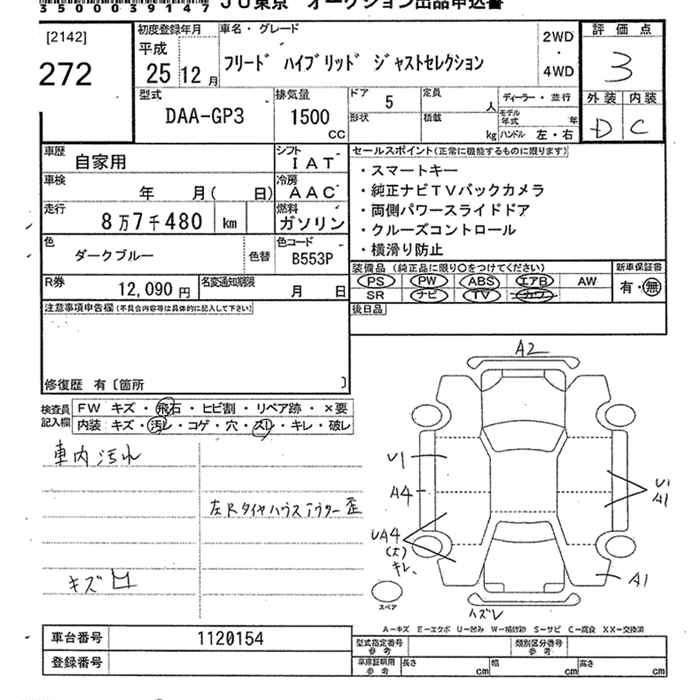 35000039147 JU東京 オークション出品申込書
[2142]
272
初度登録年月
平成
25 12月
車名・グレード
フリード ハイブリッド ジャストセレクション
2WD
・
4WD
評価点
3
外装 内装
D C
型式
DAA-GP3
排気量
1500
CC
ドア 5
定員 人
形状
積載 kg
ディーラー・並行
モデル年式 年
ハンドル 左・右
車歴 自家用
シフト IAT
車検 年 月( 日)
冷房 AAC
走行 8万7千480 km
燃料 ガソリン
色 ダークブルー
色替
色コード B553P
R券 12,090円
名変通知期限 月 日
セールスポイント(正常に機能するものに限ります)
・スマートキー
・純正ナビTVバックカメラ
・両側パワースライドドア
・クルーズコントロール
・横滑り防止
装備品(純正品に限り○をつけてください)
PS PW ABS エアB AW
SR ナビ TV カワ
新車保証書
有・無
後日品
注意事項申告欄(不具合内容等は具体的に記入して下さい)
修復歴 有〔箇所 〕
検査員記入欄
FW キズ・飛石・ヒビ割・リペア跡・×要
内装 キズ・汚レ・コゲ・穴・スレ・キレ・破レ
車内汚れ
左Rタイヤハウスアウター歪
キズ
A2
U1
A4
UA4
(大)
キレ
U1
A1
A1
ハズレ
スペア
A-キズ E-エクボ U-凹み W-補修跡 S-サビ C-腐食 XX-交換済
車台番号 1120154
登録番号
型式指定番号 参考
類別区分番号 参考
車庫証明用 参考
長さ cm
幅 cm
高さ cm